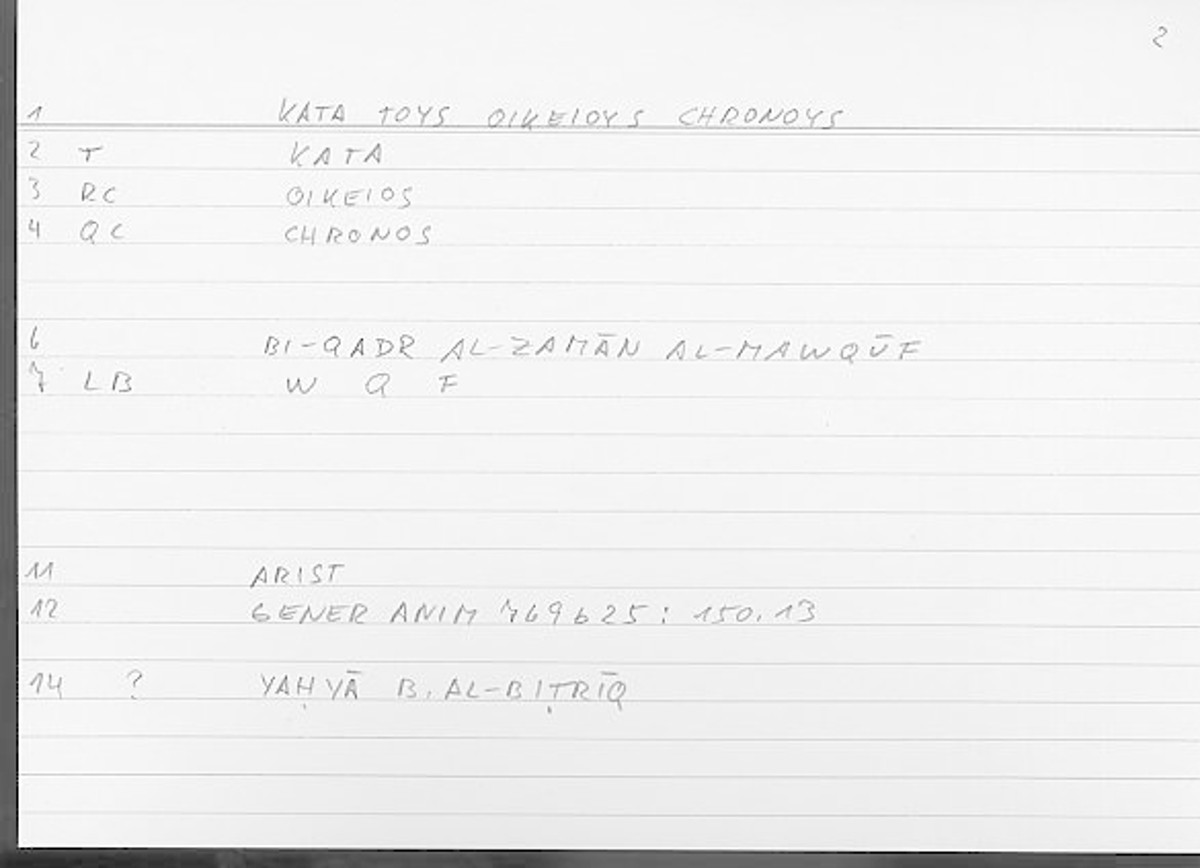 2
1 KATA TOYS OIKEIOYS CHRONOYS
2 T KATA
3 RC OIKEIOS
4 QC CHRONOS
6 BI-QADR AL-ZAMĀN AL-MAWQŪF
7 LB W Q F
11 ARIST
12 GENER ANIM 769b25: 150.13
14 ? YAḤYĀ B. AL-BIṬRĪQ